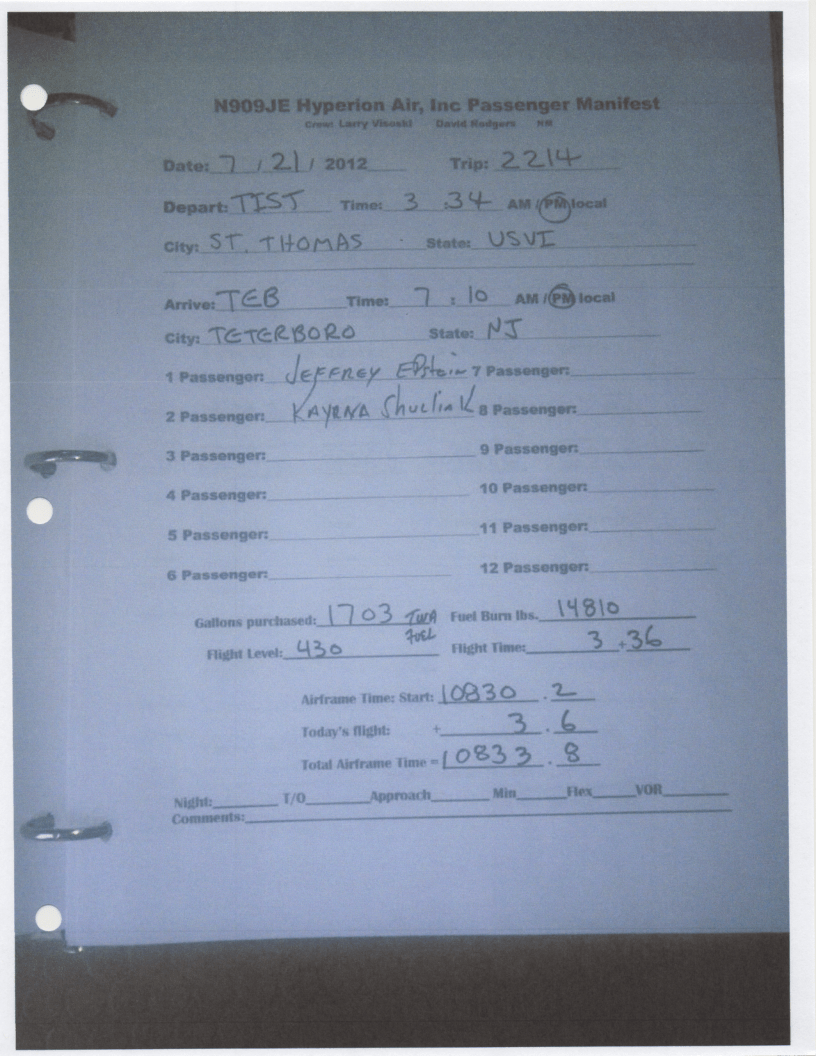 N909JE Hyperion Air, Inc Passenger Manifest
Crew: Larry Visoski David Rodgers NR
Date: 7 / 21 / 2012 Trip: 2214
Depart: TIST Time: 3 :34 AM / PM local
City: ST. THOMAS State: USVI
Arrive: TEB Time: 7 : 10 AM / PM local
City: TETERBORO State: NJ
1 Passenger: JEFFREY EPstein 7 Passenger:
2 Passenger: KAYRNA Shuliak 8 Passenger:
3 Passenger: 9 Passenger:
4 Passenger: 10 Passenger:
5 Passenger: 11 Passenger:
6 Passenger: 12 Passenger:
Gallons purchased: 1703 TWA FUEL Fuel Burn lbs. 14810
Flight Level: 430 Flight Time: 3 + 36
Airframe Time: Start: 10830 . 2
Today's flight: + 3 . 6
Total Airframe Time = 10833 . 8
Night: T/O Approach Min Flex VOR
Comments: